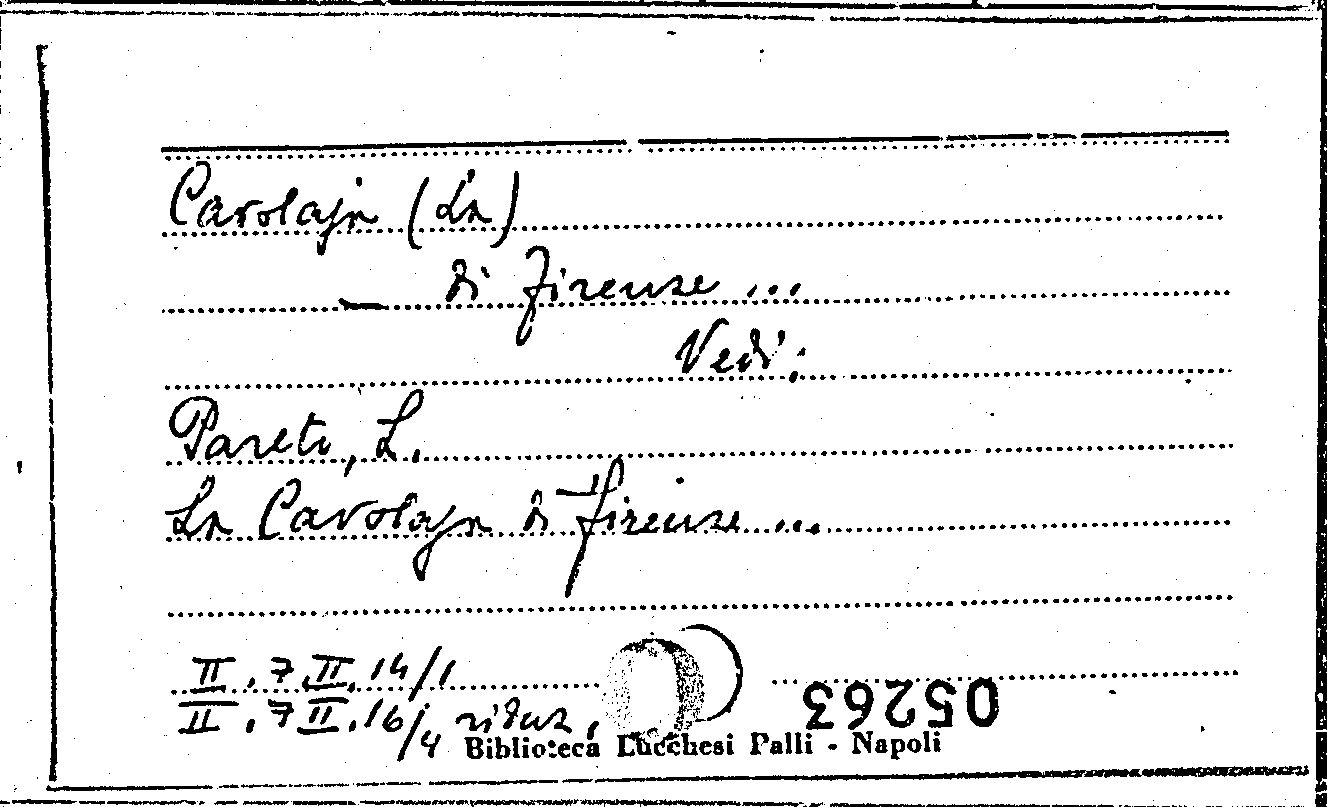 Cavolaja (La)
— di Firenze ...
Vedi:
Pareti, L.
La Cavolaja di Firenze ...
II. 7. II. 14/1
05263
II. 7 II. 16/4 riduz.
Biblioteca Lucchesi Palli - Napoli